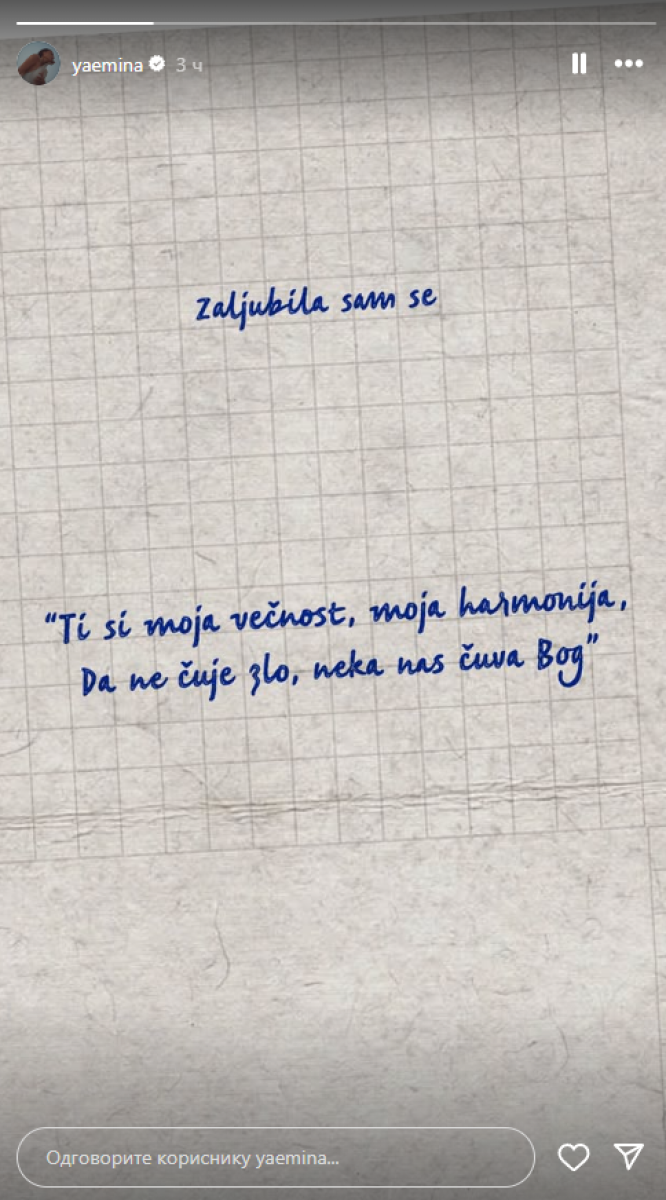 yaemina 3 ч
Zaljubila sam se
“Ti si moja večnost, moja harmonija,
Da ne čuje zlo, neka nas čuva Bog”
Одговорите кориснику yaemina...